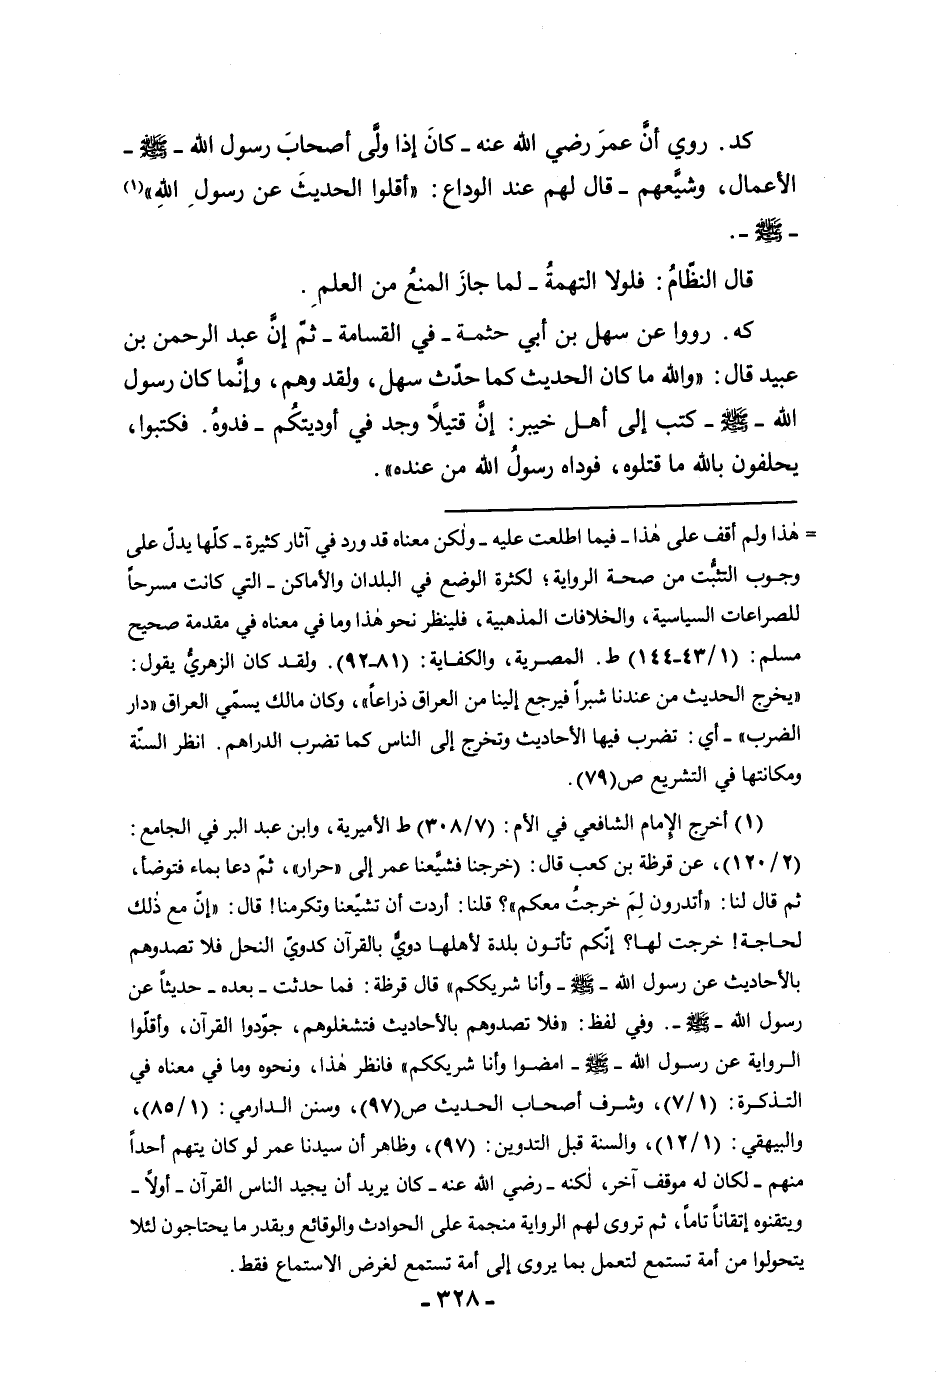 كد. روي أنَّ عمرَ رضي الله عنه ـ كانَ إذا ولَّى أصحابَ رسول الله ـ ﷺ ـ
الأعمال، وشيَّعهم ـ قال لهم عند الوداع: «أقلوا الحديثَ عن رسولِ اللهِ»(١)
ـ ﷺ ـ.
قال النظّامُ: فلولا التهمةُ ـ لما جازَ المنعُ من العلمِ.
كه. رووا عن سهل بن أبي حثمـة ـ في القسامة ـ ثمّ إنَّ عبد الرحمن بن
عبيد قال: «والله ما كان الحديث كما حدّث سهل، ولقد وهم، وإنَّما كان رسول
الله ـ ﷺ ـ كتب إلى أهـل خيبر: إنَّ قتيلاً وجد في أوديتكُم ـ فدوهُ. فكتبوا،
يحلفون بالله ما قتلوه، فوداه رسولُ الله من عنده».
= هٰذا ولم أقف على هٰذا ـ فيما اطلعت عليه ـ ولٰكن معناه قد ورد في آثار كثيرة ـ كلّها يدلّ على
وجـوب التثبُّت من صحـة الروايـة؛ لكثرة الوضع في البلدان والأماكن ـ التي كانت مسرحاً
للصراعات السياسية، والخلافات المذهبية، فلينظر نحو هٰذا وما في معناه في مقدمة صحيح
مسلم: (١/٤٣ـ١٤٤) ط. المصرية، والكفاية: (٨١ـ٩٢). ولقـد كان الزهريُّ يقول:
«يخرج الحديث من عندنا شبراً فيرجع إلينا من العراق ذراعاً»، وكان مالك يسمّي العراق «دار
الضرب» ـ أي: تضرب فيها الأحاديث وتخرج إلى الناس كما تضرب الدراهم. انظر السنّة
ومكانتها في التشريع ص(٧٩).
(١) أخرج الإمام الشافعي في الأم: (٣٠٨/٧) ط الأميرية، وابن عبد البر في الجامع:
(١٢٠/٢)، عن قرظة بن كعب قال: (خرجنا فشيَّعنا عمر إلى «حرار»، ثمّ دعا بماء فتوضأ،
ثم قال لنا: «أتدرون لِمَ خرجتُ معكم»؟ قلنا: أردت أن تشيّعنا وتكرمنا! قال: «إنّ مع ذٰلك
لحـاجـة! خرجت لهـا؟ إنّكم تأتـون بلدة لأهلهـا دويٌّ بالقرآن كدويّ النحل فلا تصدوهم
بالأحاديث عن رسول الله ـ ﷺ ـ وأنا شريككم» قال قرظة: فما حدثت ـ بعده ـ حديثاً عن
رسول الله ـ ﷺ ـ. وفي لفظ: «فلا تصدوهم بالأحاديث فتشغلوهم، جوّدوا القرآن، وأقلّوا
الـرواية عن رسـول الله ـ ﷺ ـ امضـوا وأنا شريككم» فانظر هٰذا، ونحوه وما في معناه في
التـذكـرة: (٧/١)، وشرف أصحـاب الحـديث ص(٩٧)، وسنن الـدارمي: (٨٥/١)،
والبيهقي: (١٢/١)، والسنة قبل التدوين: (٩٧)، وظاهر أن سيدنا عمر لو كان يتهم أحداً
منهم ـ لكان له موقف آخر، لٰكنه ـ رضي الله عنه ـ كان يريد أن يجيد الناس القرآن ـ أولاً ـ
ويتقنوه إتقاناً تاماً، ثم تروى لهم الرواية منجمة على الحوادث والوقائع وبقدر ما يحتاجون لئلا
يتحولوا من أمة تستمع لتعمل بما يروى إلى أمة تستمع لغرض الاستماع فقط.
ـ ٣٢٨ ـ